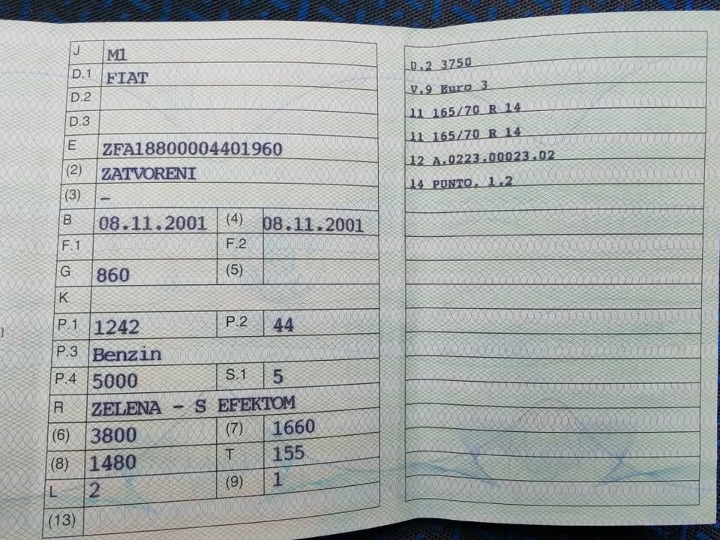 J M1
D.1 FIAT
D.2
D.3
E ZFA18800004401960
(2) ZATVORENI
(3) –
B 08.11.2001 (4) 08.11.2001
F.1 F.2
G 860 (5)
K
P.1 1242 P.2 44
P.3 Benzin
P.4 5000 S.1 5
R ZELENA - S EFEKTOM
(6) 3800 (7) 1660
(8) 1480 T 155
L 2 (9) 1
(13)
U.2 3750
V.9 Euro 3
11 165/70 R 14
11 165/70 R 14
12 A.0223.00023.02
14 PUNTO, 1.2